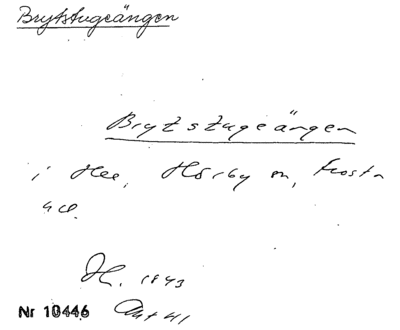 Brytstugeängen
Brytstugeängen
i Hee, Hörby sn, Frosta
hd.
H. 1943
Nr 10446